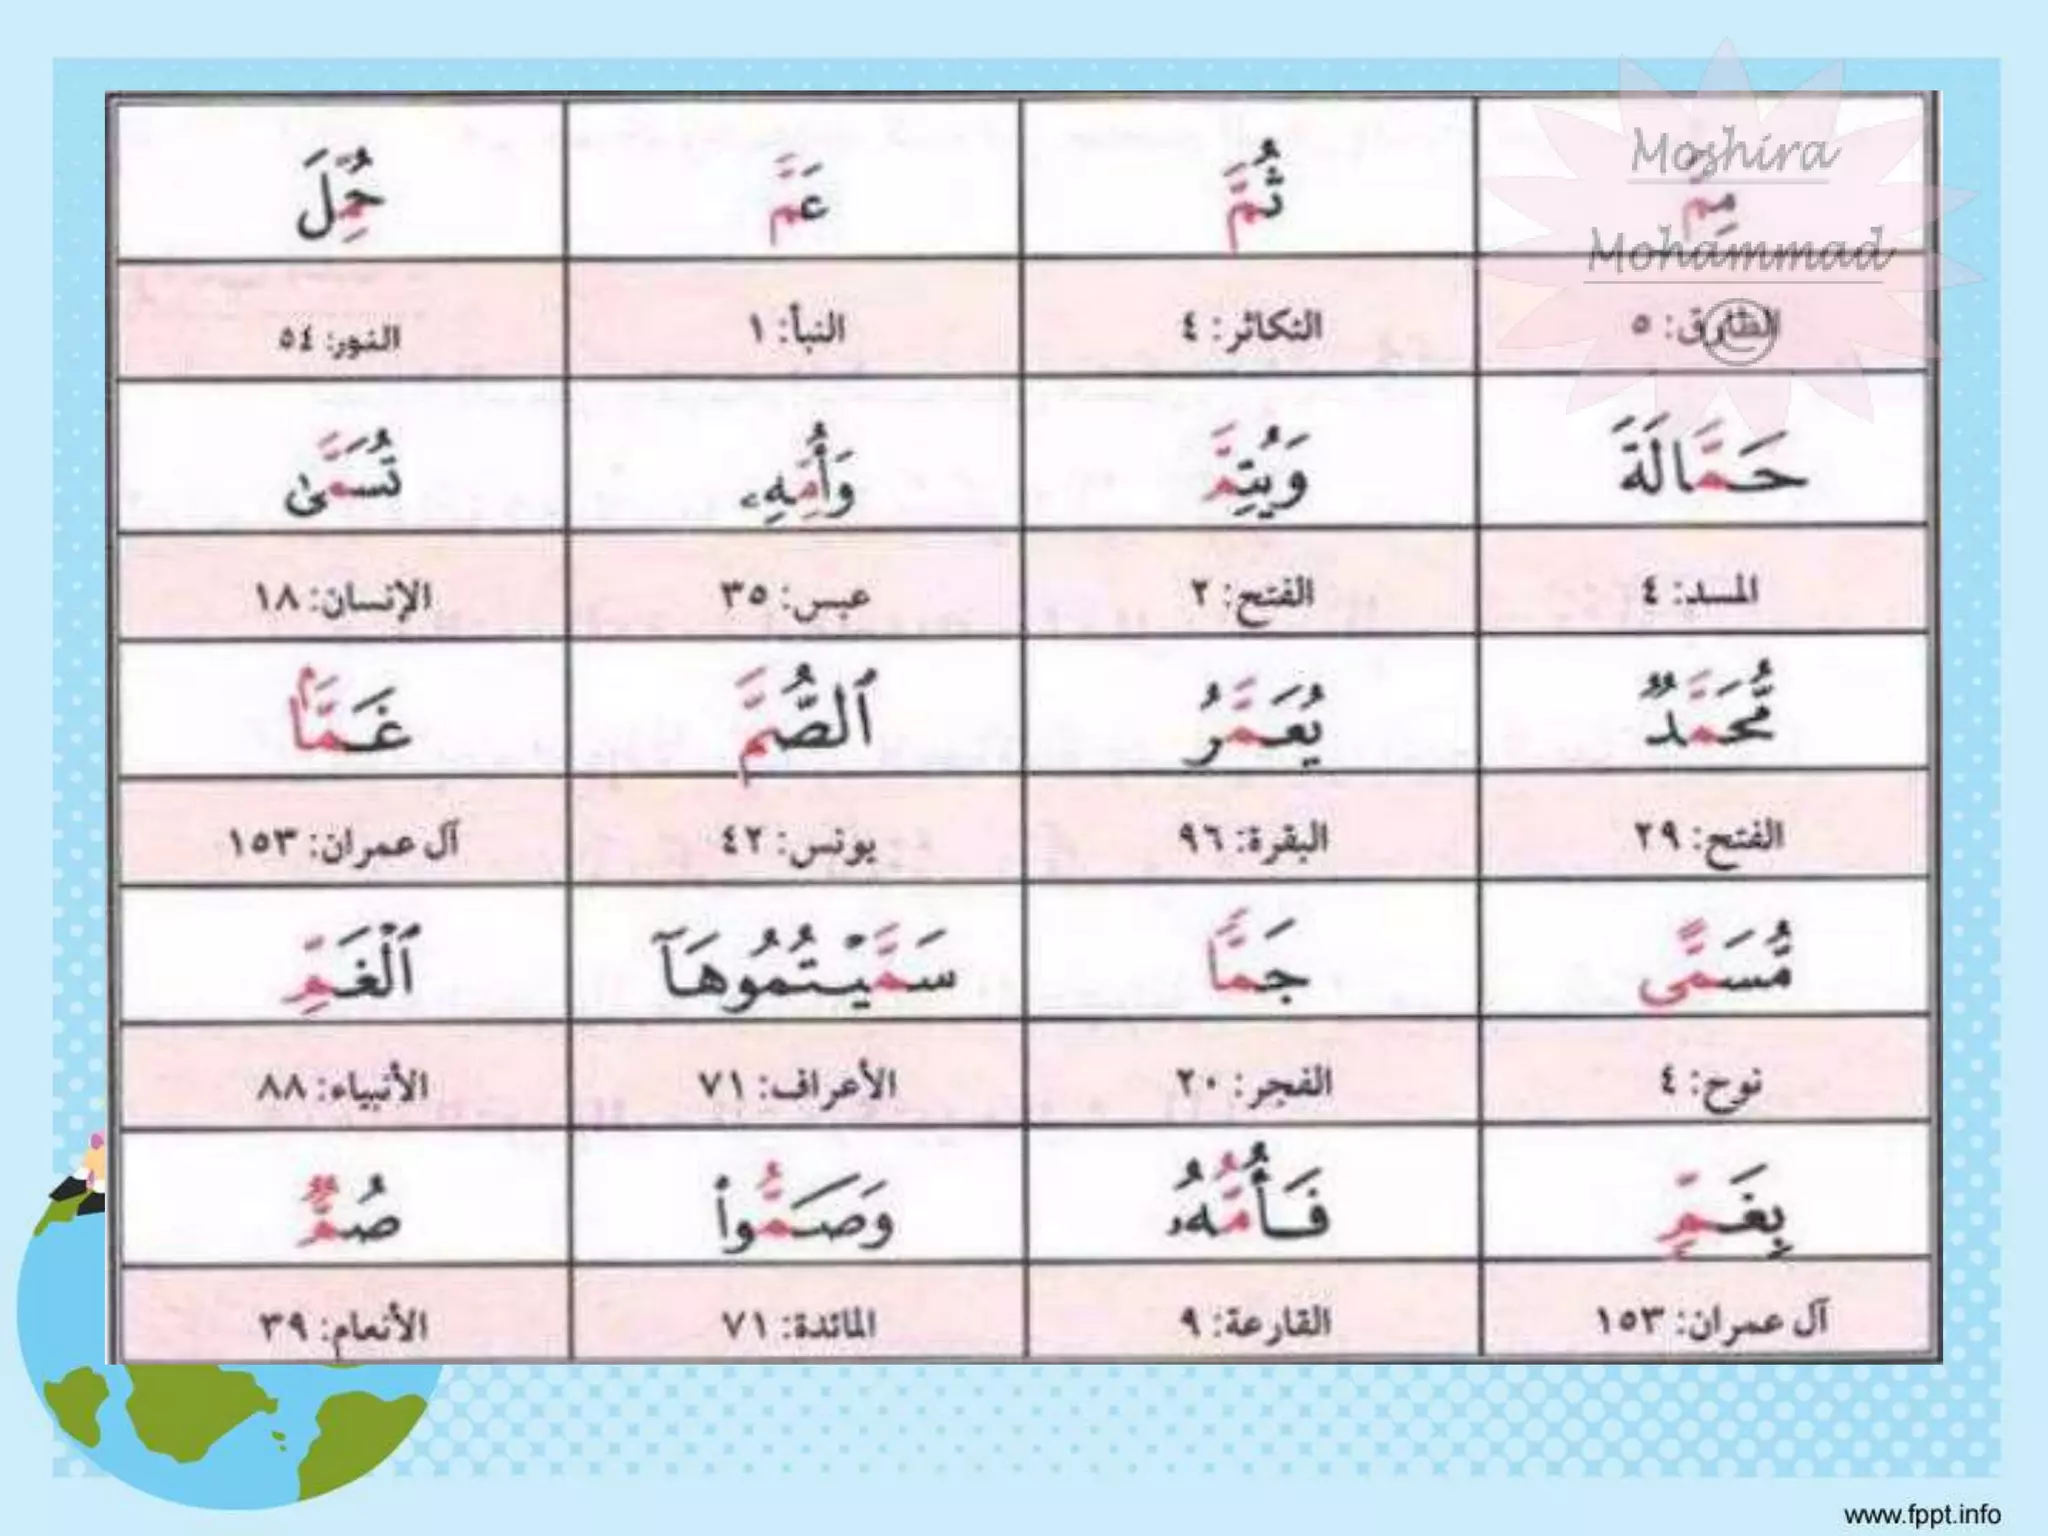 Moshira
Mohammad
©
مِمَّ ثُمَّ عَمَّ حُمِّلَ
الطارق: ٥ التكاثر: ٤ النبأ: ١ النور: ٥٤
حَمَّالَةَ وَيُتِمَّ وَأُمِّهِۦ تُسَمَّىٰ
المسد: ٤ الفتح: ٢ عبس: ٣٥ الإنسان: ١٨
مُّحَمَّدٌ يُعَمَّرُ ٱلصُّمَّ غَمَّۢا
الفتح: ٢٩ البقرة: ٩٦ يونس: ٤٢ آل عمران: ١٥٣
مُّسَمًّى جَمًّا سَمَّيْتُمُوهَآ ٱلْغَمِّ
نوح: ٤ الفجر: ٢٠ الأعراف: ٧١ الأنبياء: ٨٨
بِغَمٍّ فَأُمُّهُۥ وَصَمُّوا۟ صُمٌّ
آل عمران: ١٥٣ القارعة: ٩ المائدة: ٧١ الأنعام: ٣٩
www.fppt.info